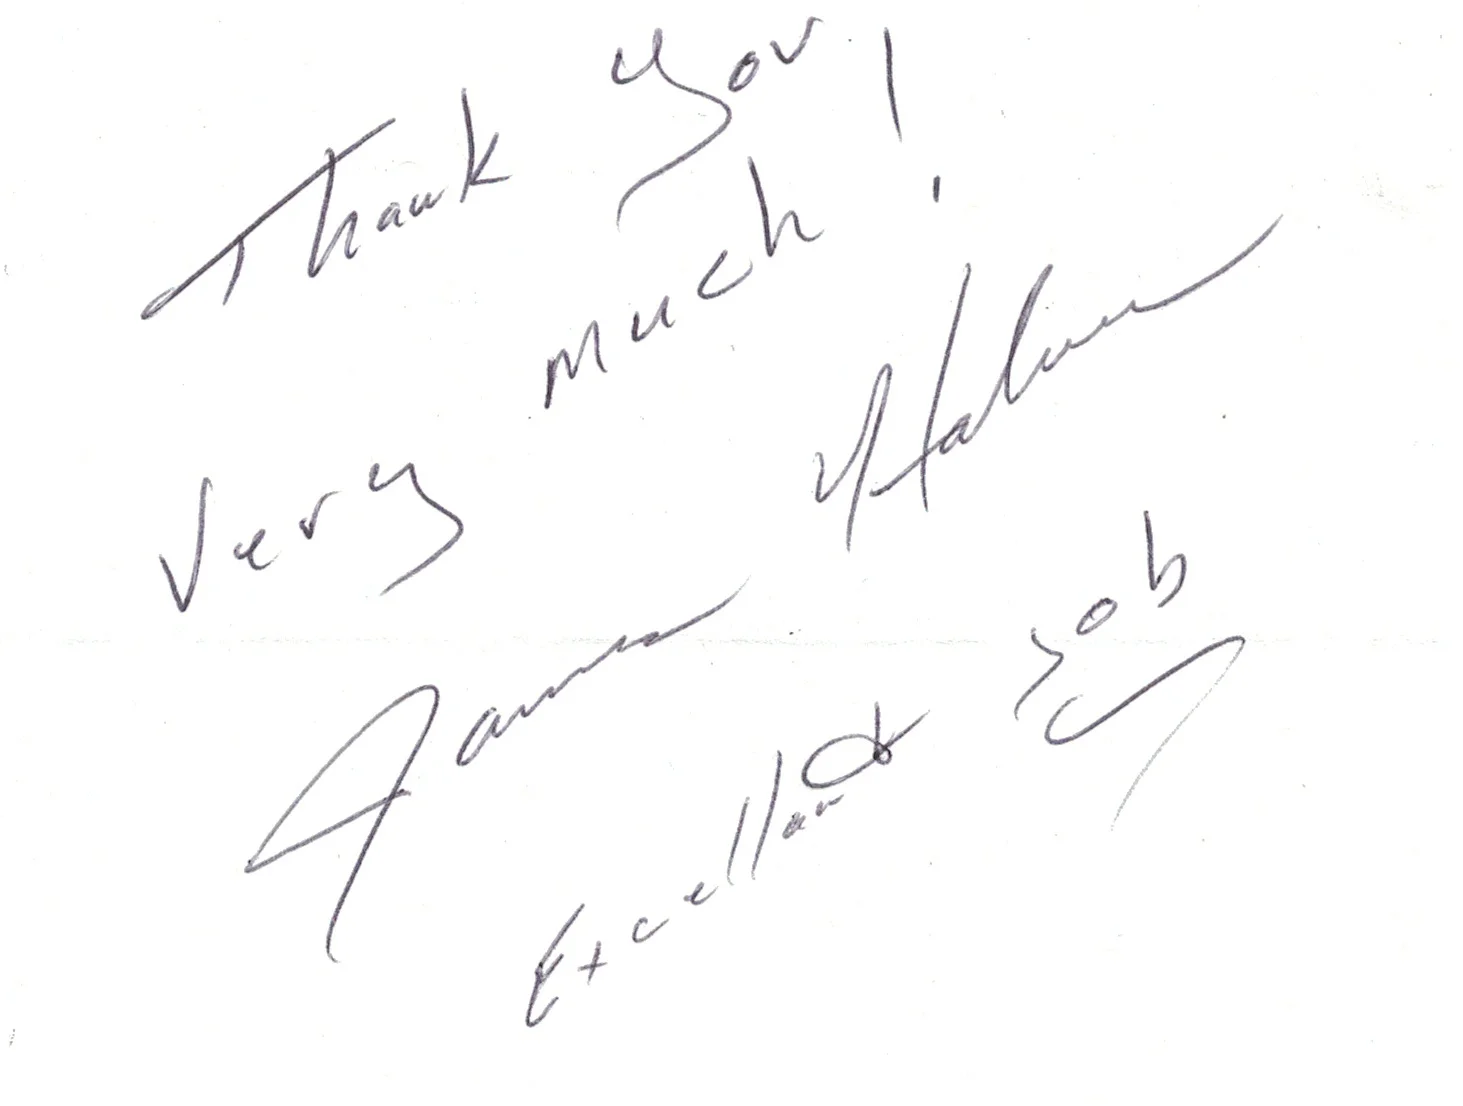 Thank you!
Very much
James
Excellant Job